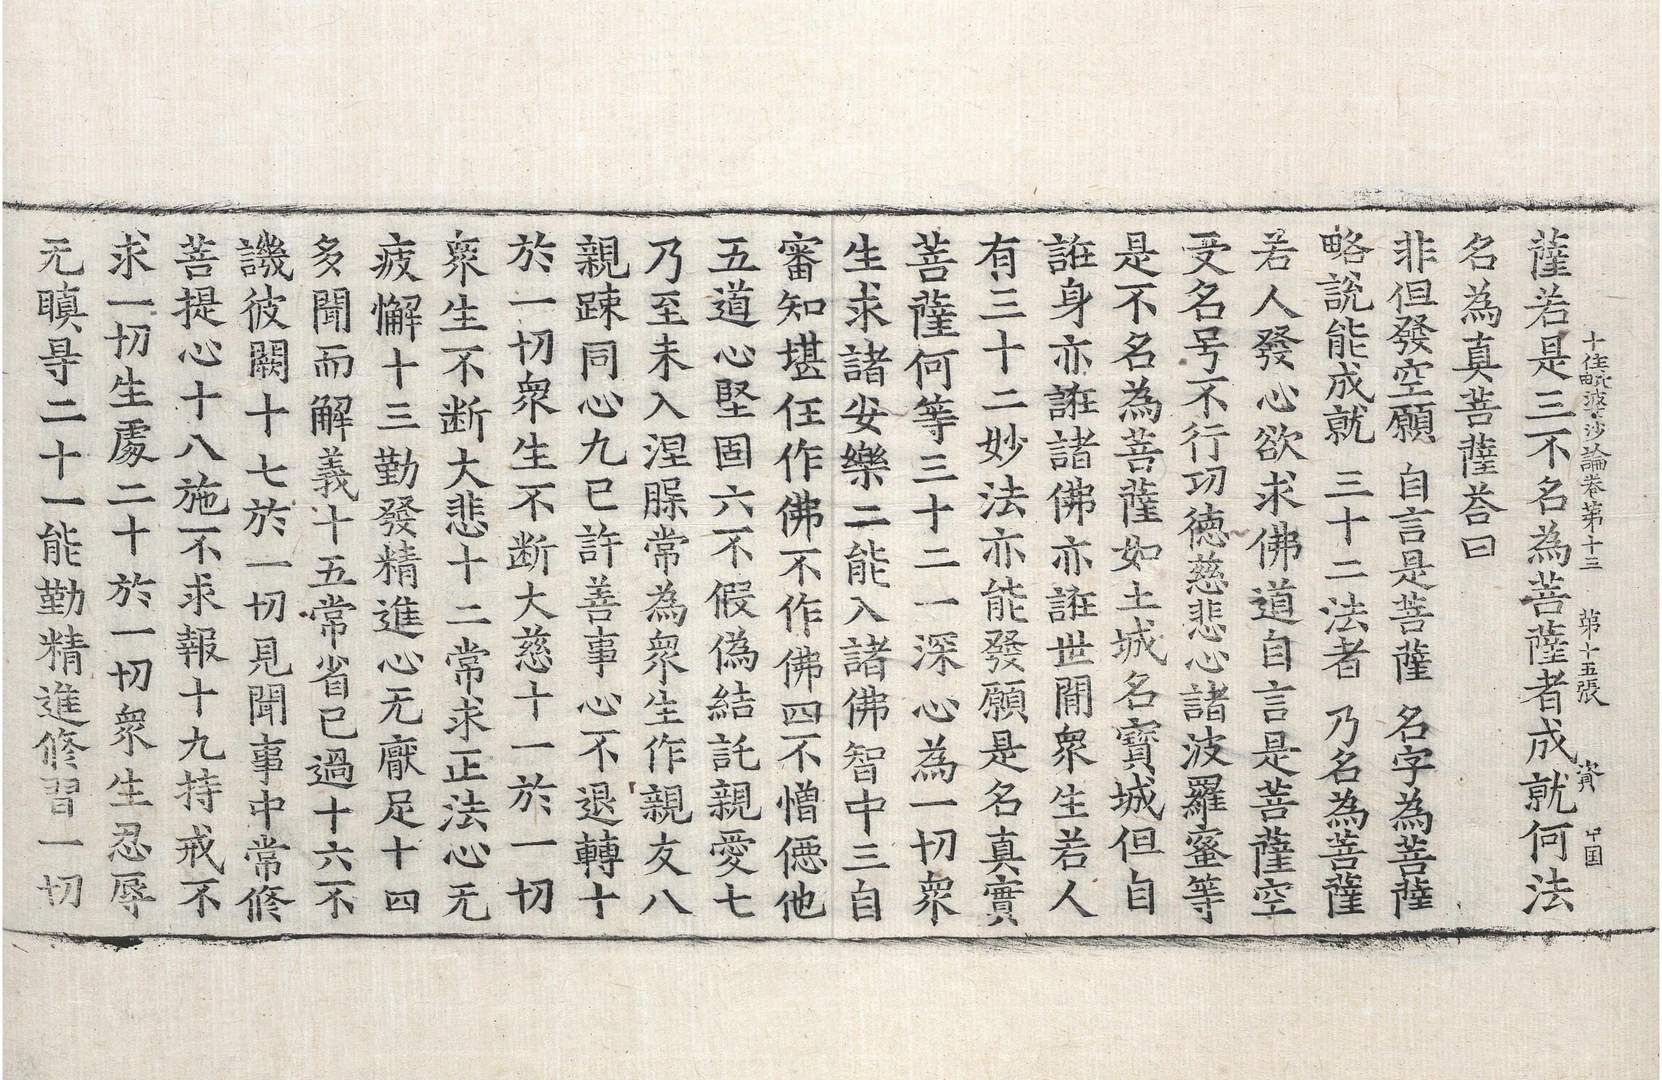 十住毗婆沙論卷第十三 第十五張 資 中囯
薩若是三不名為菩薩者成就何法
名為真菩薩荅曰
非但發空願 自言是菩薩 名字為菩薩
略說能成就 三十二法者 乃名為菩薩
若人發心欲求佛道自言是菩薩空
受名号不行功德慈悲心諸波羅蜜等
是不名為菩薩如土城名寶城但自
誑身亦誑諸佛亦誑世閒衆生若人
有三十二妙法亦能發願是名真實
菩薩何等三十二一深心為一切衆
生求諸安樂二能入諸佛智中三自
審知堪任作佛不作佛四不憎惡他
五道心堅固六不假偽結託親愛七
乃至未入涅槃常為衆生作親友八
親踈同心九已許善事心不退轉十
於一切衆生不断大慈十一於一切
衆生不断大悲十二常求正法心无
疲懈十三勤發精進心无厭足十四
多聞而解義十五常省已過十六不
譏彼闕十七於一切見聞事中常修
菩提心十八施不求報十九持戒不
求一切生處二十於一切衆生忍辱
无瞋㝵二十一能勤精進修習一切